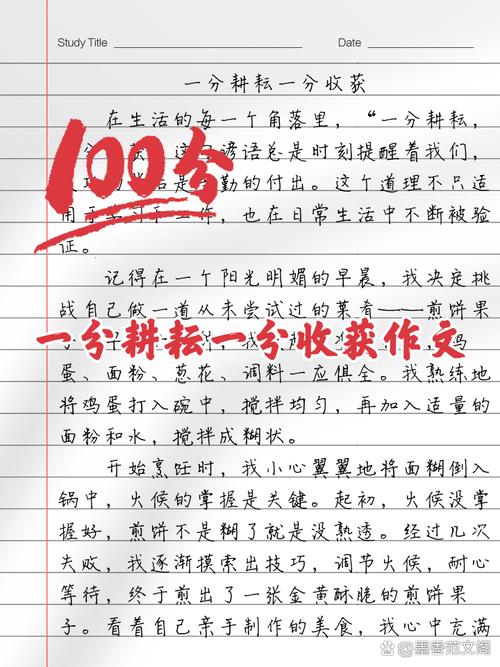 Study Title
Date
一分耕耘一分收获
在生活的每一个角落里，“一分耕耘，
100分
谚语总是时刻提醒着我们，
是 勤的付出。这个道理不只适
用于学习和工作，也在日常生活中不断被验
证。
记得在一个阳光明媚的早晨，我决定挑
战自己做一道从未尝试过的菜肴——煎饼果
一分耕耘一分收获作文
蛋、面粉、葱花、调料一应俱全。我熟练地
将鸡蛋打入碗中，搅拌均匀，再加入适量的
面粉和水，搅拌成糊状。
开始烹饪时，我小心翼翼地将面糊倒入
锅中，火候的掌握是关键。起初，火候没掌
握好，煎饼不是糊了就是没熟透。经过几次
失败，我逐渐摸索出技巧，调节火候，耐心
等待，终于煎出了一张金黄酥脆的煎饼果
子。看着自己亲手制作的美食，我心中充满
@墨香范文阁